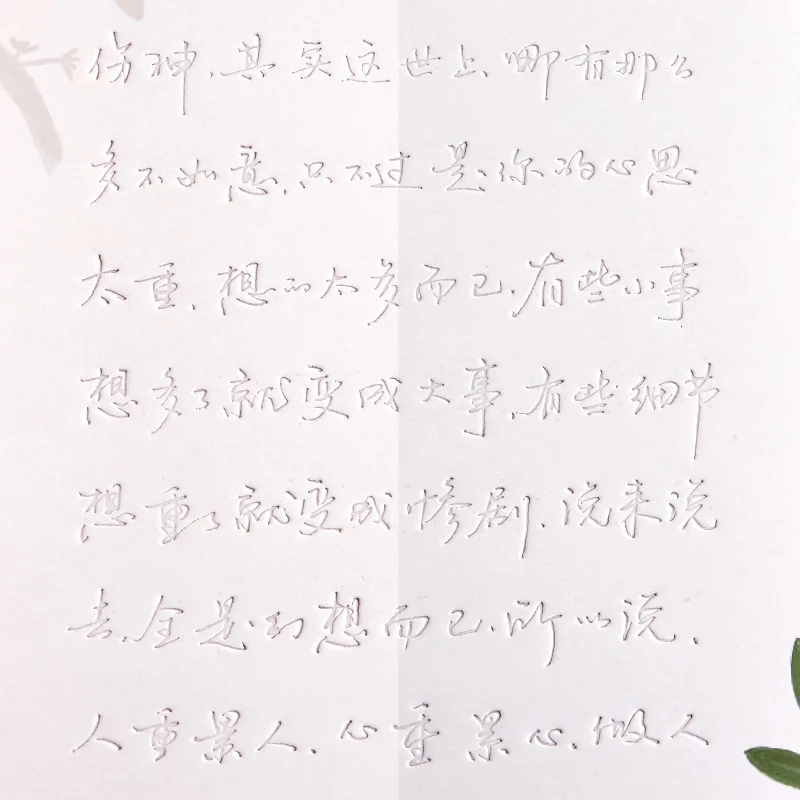 伤神,其实这世上,哪有那么
多不如意,只不过是,你的心思
太重,想的太多而已,有些小事
想多了就变成大事,有些细节
想重了就变成惨剧,说来说
去,全是幻想而已,所以说,
人重累人,心重累心,做人